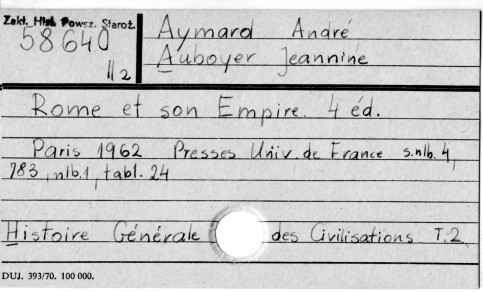 Zakł. Hist. Powsz. Staroż.
58640
II 2
Aymard André
Auboyer Jeannine
Rome et son Empire. 4 éd.
Paris 1962 Presses Univ. de France s.nlb. 4,
783, nlb. 1, tabl. 24
Histoire Générale des Civilisations T. 2.
DUJ. 393/70. 100 000.